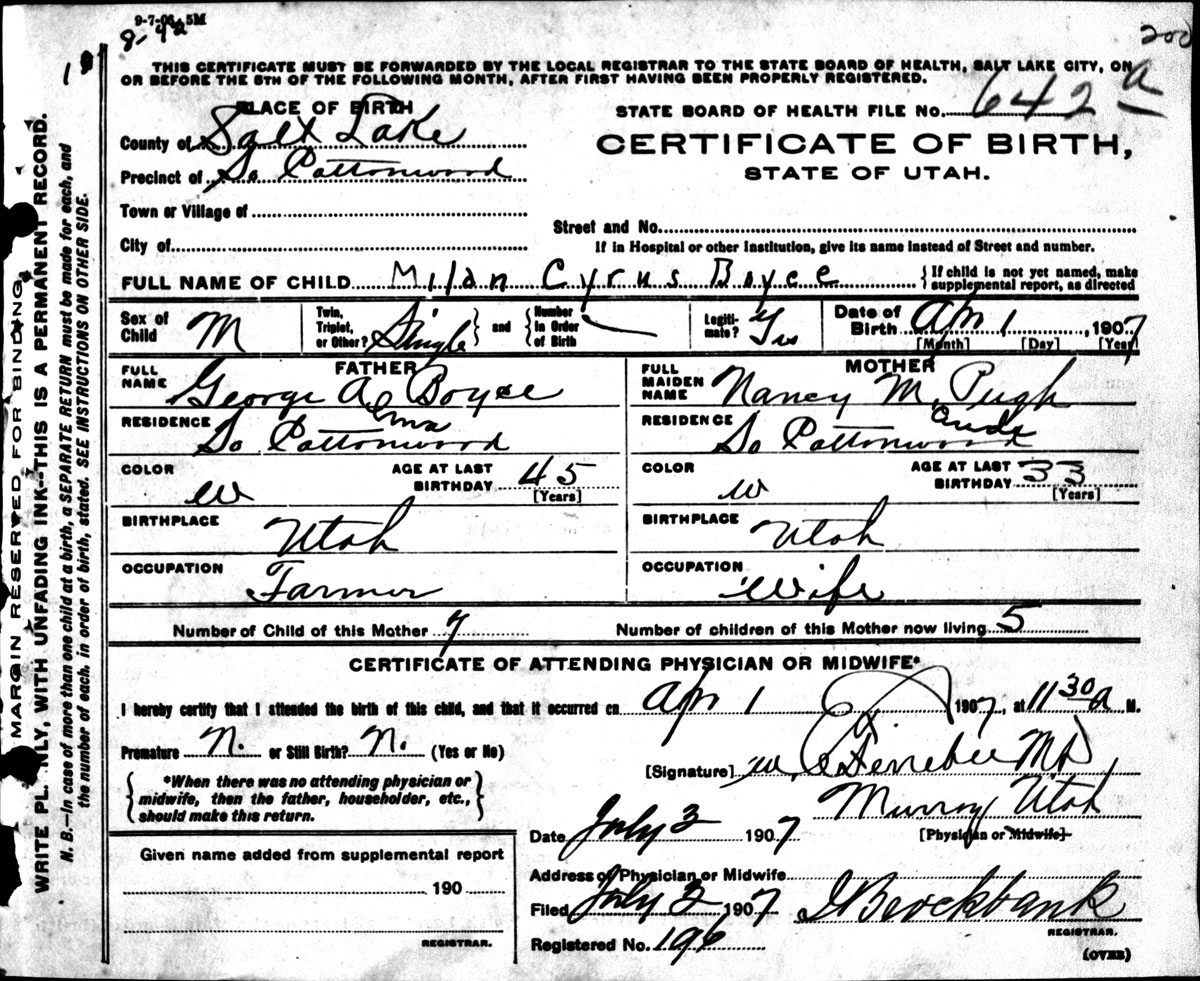 9-7-06 5M
8-42
200
THIS CERTIFICATE MUST BE FORWARDED BY THE LOCAL REGISTRAR TO THE STATE BOARD OF HEALTH, SALT LAKE CITY, ON
OR BEFORE THE 5TH OF THE FOLLOWING MONTH, AFTER FIRST HAVING BEEN PROPERLY REGISTERED.
PLACE OF BIRTH
STATE BOARD OF HEALTH FILE No. 642 a
County of Salt Lake
CERTIFICATE OF BIRTH,
Precinct of So Cottonwood
STATE OF UTAH.
Town or Village of
Street and No.
City of
If in Hospital or other Institution, give its name instead of Street and number.
FULL NAME OF CHILD Milan Cyrus Boyce { If child is not yet named, make supplemental report, as directed
Sex of Child M Twin, Triplet, or Other? Single } and { Number in Order of Birth Legitimate? Yes Date of Birth Apr 1, 1907
[Month] [Day] [Year]
FATHER
FULL NAME George A Boyce
ma
RESIDENCE So Cottonwood
COLOR W AGE AT LAST BIRTHDAY 45
[Years]
BIRTHPLACE Utah
OCCUPATION Farmer
MOTHER
FULL MAIDEN NAME Nancy M. Pugh
RESIDENCE So Cottonwood
COLOR W AGE AT LAST BIRTHDAY 33
[Years]
BIRTHPLACE Utah
OCCUPATION Wife
Number of Child of this Mother 7 Number of children of this Mother now living 5
CERTIFICATE OF ATTENDING PHYSICIAN OR MIDWIFE*
I hereby certify that I attended the birth of this child, and that it occurred on Apr 1 1907, at 11 30 a M.
Premature N. or Still Birth? N. (Yes or No)
[Signature] W. MD
{ *When there was no attending physician or
midwife, then the father, householder, etc.,
should make this return. }
Murray Utah
Date July 3 1907 [Physician or Midwife]
Given name added from supplemental report
190
REGISTRAR.
Address of Physician or Midwife
Filed July 3 1907 J Brockbank
REGISTRAR.
Registered No. 196
(OVER)
MARGIN RESERVED FOR BINDING
WRITE PLAINLY, WITH UNFADING INK--THIS IS A PERMANENT RECORD.
N. B.—In case of more than one child at a birth, a SEPARATE RETURN must be made for each, and
the number of each, in order of birth, stated. SEE INSTRUCTIONS ON OTHER SIDE.